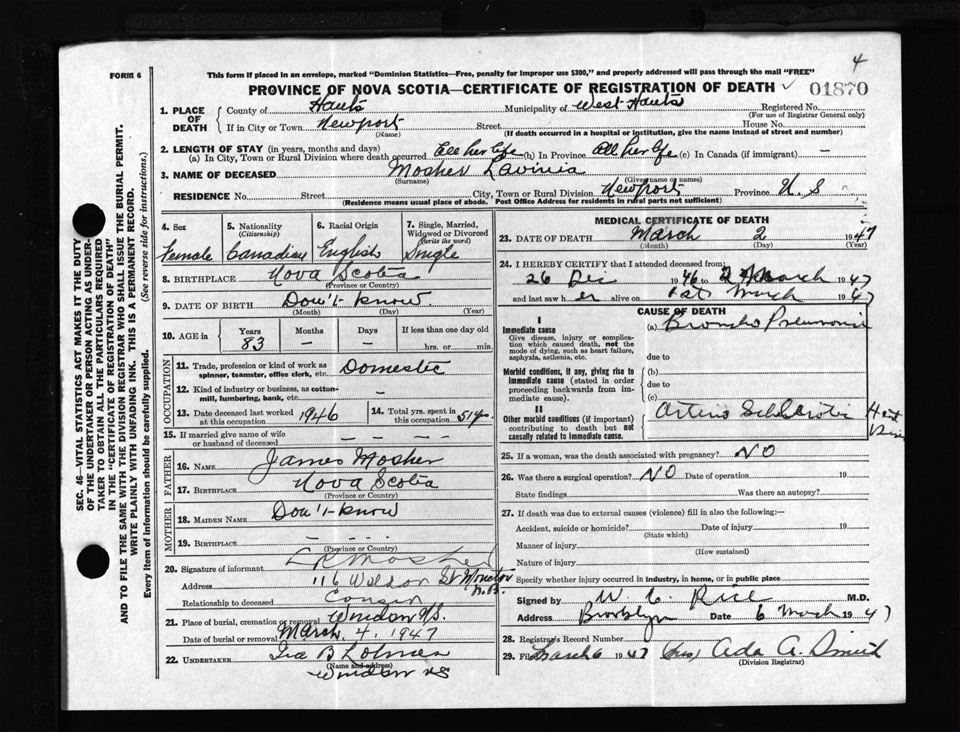 4
FORM 6
This form if placed in an envelope, marked "Dominion Statistics—Free, penalty for improper use $300," and properly addressed will pass through the mail "FREE"
PROVINCE OF NOVA SCOTIA—CERTIFICATE OF REGISTRATION OF DEATH 01870
1. PLACE OF DEATH
County of Hants Municipality of West Hants Registered No.
(For use of Registrar General only)
If in City or Town Newport Street House No.
(Name) (If death occurred in a hospital or institution, give the name instead of street and number)
2. LENGTH OF STAY (in years, months and days)
(a) In City, Town or Rural Division where death occurred All her life (b) In Province All her life (c) In Canada (if immigrant) —
3. NAME OF DECEASED Mosher Lavinia
(Surname) (Given name or names)
RESIDENCE No. Street City, Town or Rural Division Newport Province N. S
(Residence means usual place of abode. Post Office Address for residents in rural parts not sufficient)
SEC. 46—VITAL STATISTICS ACT MAKES IT THE DUTY
OF THE UNDERTAKER OR PERSON ACTING AS UNDER-
TAKER TO OBTAIN ALL THE PARTICULARS REQUIRED
IN THE "CERTIFICATE OF REGISTRATION OF DEATH"
AND TO FILE THE SAME WITH THE DIVISION REGISTRAR WHO SHALL ISSUE THE BURIAL PERMIT.
WRITE PLAINLY WITH UNFADING INK. THIS IS A PERMANENT RECORD.
Every item of information should be carefully supplied. (See reverse side for instructions.)
4. Sex
Female
5. Nationality
(Citizenship)
Canadian
6. Racial Origin
English
7. Single, Married,
Widowed or Divorced
(Write the word)
Single
8. BIRTHPLACE Nova Scotia
(Province or Country)
9. DATE OF BIRTH Don't know
(Month) (Day) (Year)
10. AGE in Years Months Days If less than one day old
83 — — hrs. or min.
OCCUPATION
11. Trade, profession or kind of work as
spinner, teamster, office clerk, etc. Domestic
12. Kind of industry or business, as cotton-
mill, lumbering, bank, etc. -
13. Date deceased last worked
at this occupation 1946
14. Total yrs. spent in
this occupation
15. If married give name of wife
or husband of deceased — — — —
FATHER
16. NAME James Mosher
17. BIRTHPLACE Nova Scotia
(Province or Country)
MOTHER
18. MAIDEN NAME Don't know
19. BIRTHPLACE - - - -
(Province or Country)
20. Signature of informant Mosher
Address 116 Weldon St Moncton
N.B.
Relationship to deceased Cousin
21. Place of burial, cremation or removal Windsor N.S.
Date of burial or removal March 4, 1947
22. UNDERTAKER Ira B
(Name and address)
Windsor NS
MEDICAL CERTIFICATE OF DEATH
23. DATE OF DEATH March 2 1947
(Month) (Day) (Year)
24. I HEREBY CERTIFY that I attended deceased from:
26 Dec 1946 to 2 March 1947
and last saw her alive on 1st March 1947
CAUSE OF DEATH
I
Immediate cause
Give disease, injury or complica-
tion which caused death, not the
mode of dying, such as heart failure,
asphyxia, asthenia, etc.
(a) Broncho Pneumonia
due to
Morbid conditions, if any, giving rise to
immediate cause (stated in order
proceeding backwards from im-
mediate cause).
(b)
due to
(c)
II
Other morbid conditions (if important)
contributing to death but not
causally related to immediate cause.
25. If a woman, was the death associated with pregnancy? NO
26. Was there a surgical operation? NO Date of operation 19
State findings Was there an autopsy?
27. If death was due to external causes (violence) fill in also the following:—
Accident, suicide or homicide? Date of injury 19
(State which)
Manner of injury
(How sustained)
Nature of injury
Specify whether injury occurred in industry, in home, or in public place
Signed by W. C. Rice M.D.
Address Brooklyn Date 6 March 1947
28. Registrar's Record Number
29. Filed March 6 1947 (Mrs) Ada A. Smith
(Division Registrar)